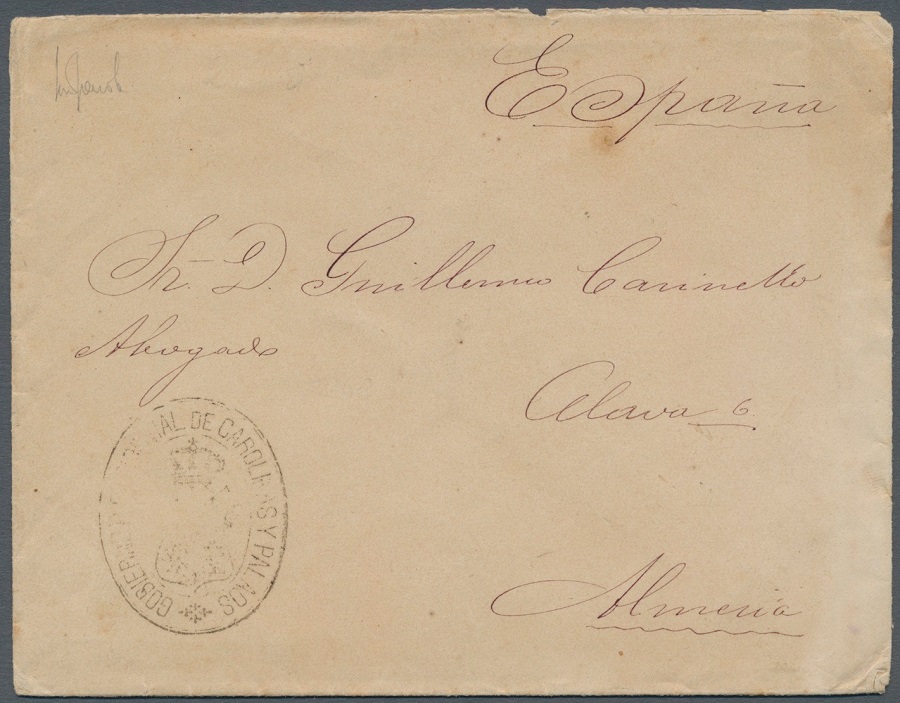 España
Sr. D. Guillermo Carinetto
Abogado
Alava 6
Almeria
DE CAROLINAS Y PALAOS